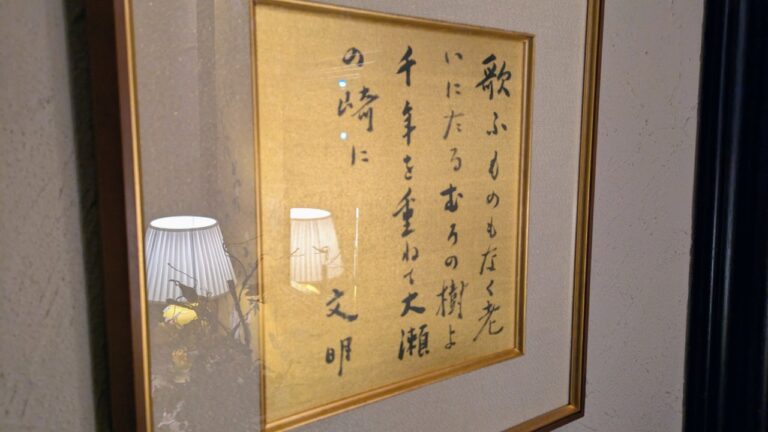 歌ふものもなく老
いにたるむろの樹よ
千年を重ねて大瀬
の崎に
文明